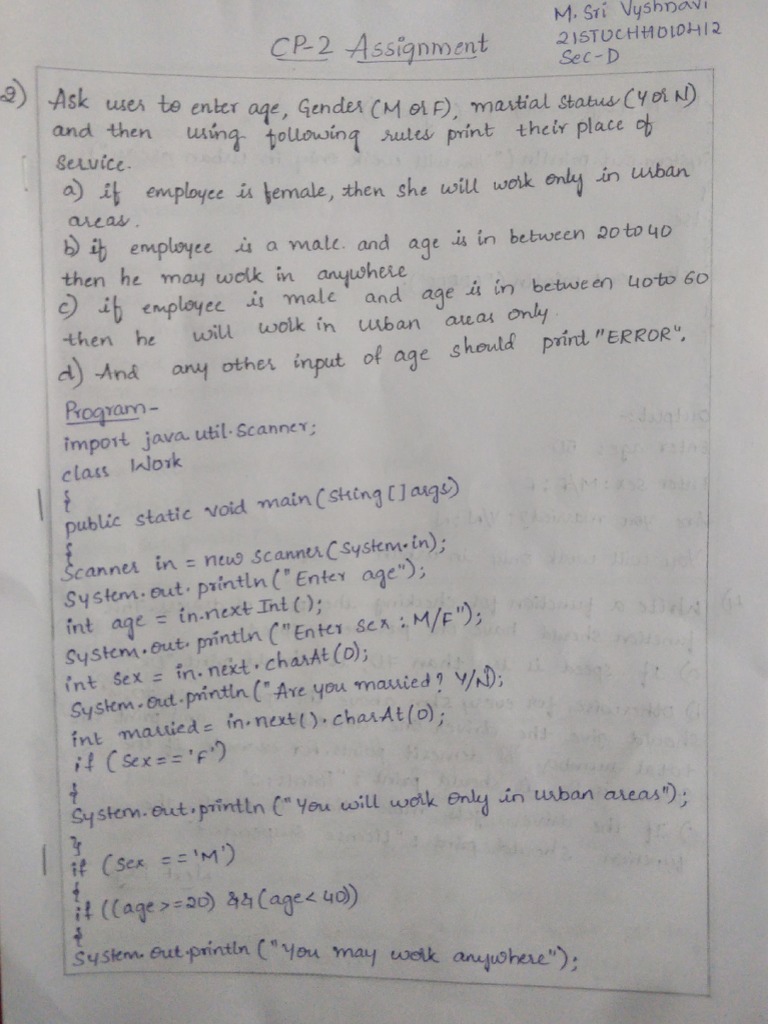 M. Sri Vyshnavi
CP-2 Assignment
21STUCHH010412
Sec-D
2) Ask user to enter age, Gender (M or F), martial Status (Y or N)
and then using following rules print their place of
Service.
a) if employee is female, then she will work only in urban
areas.
b) if employee is a male. and age is in between 20 to 40
then he may work in anywhere
c) if employee is male and age is in between 40 to 60
then he will work in urban areas only.
d) And any other input of age should print "ERROR".
Program-
import java.util.Scanner;
class Work
{
public static void main(String [] args)
{
Scanner in = new Scanner(System.in);
System.out.println("Enter age");
int age = in.next Int();
System.out.println ("Enter sex : M/F");
int sex = in.next.charAt(0);
System.out.println("Are you married? Y/N);
int married = in.next().charAt(0);
if (Sex=='F')
{
System.out.println ("You will work only in urban areas");
}
if (sex =='M')
{
if ((age>=20) &&(age<40))
{
System.out.println ("You may work anywhere");